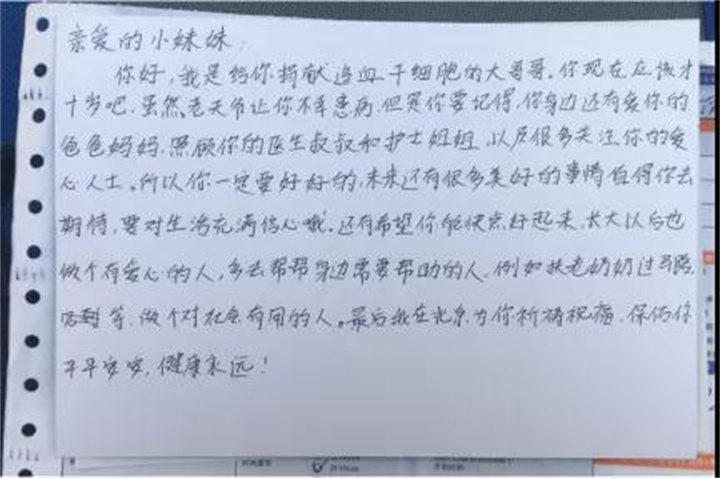 亲爱的小妹妹:
你好,我是给你捐献造血干细胞的大哥哥。你现在应该才
十岁吧,虽然老天爷让你不幸患病,但是你要记得,你身边还有爱你的
爸爸妈妈,照顾你的医生叔叔和护士姐姐,以及很多关注你的爱
心人士。所以你一定要好好的,未来还有很多美好的事情值得你去
期待,要对生活充满信心哦。还有希望你能快点好起来,长大以后也
做个有爱心的人,多去帮帮身边需要帮助的人,例如扶老奶奶过马路,
等,做个对社会有用的人。最后我在北京为你祈祷祝福,保佑你
平平安安,健康永远!